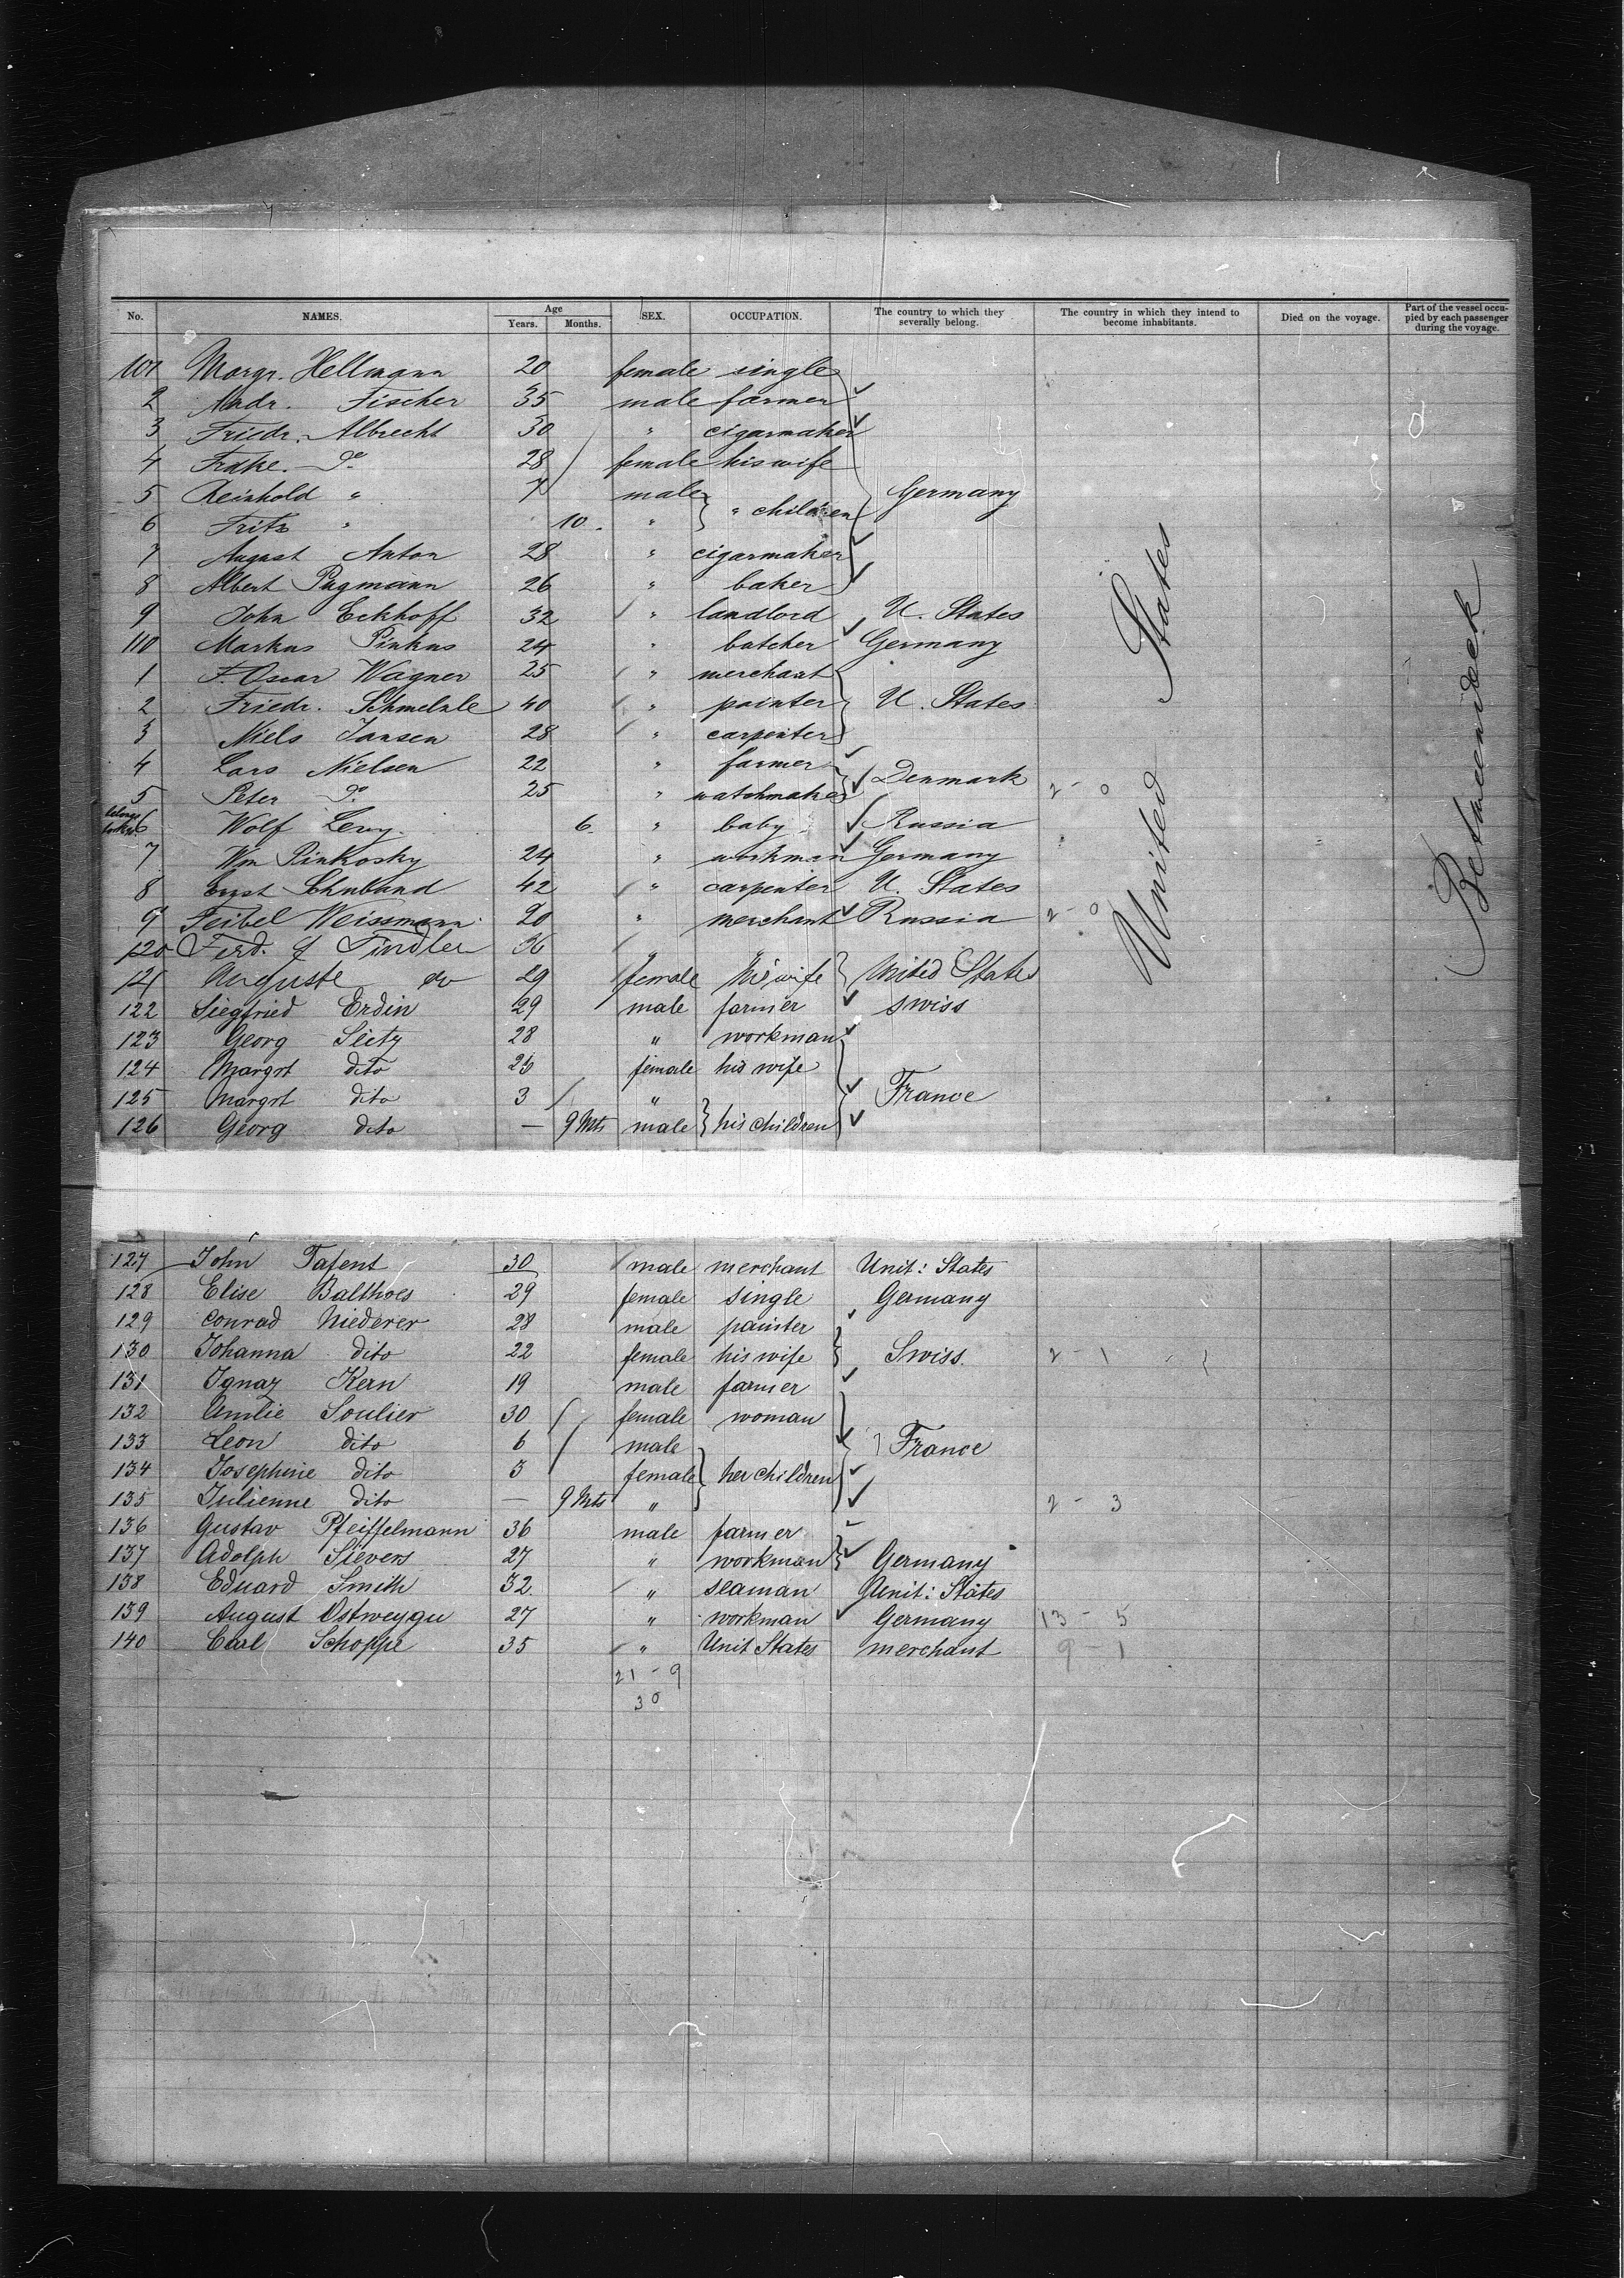 No. NAMES. Age Years. Months. SEX. OCCUPATION. The country to which they severally belong. The country in which they intend to become inhabitants. Died on the voyage. Part of the vessel occupied by each passenger during the voyage.
101 Margr. Hellmann 20 female single
2 Andr. Fischer 35 male farmer
3 Friedr. Albrecht 30 " cigarmaker
4 Frdke. Do 28 female his wife
5 Reinhold " 7 male " children Germany
6 Fritz " 10. "
7 August Anton 28 " cigarmaker
8 Albert Pagmann 26 " baker
9 John Eckhoff 32 " landlord U. States
110 Markus Pinkus 24 " butcher Germany
1 F. Oscar Wagner 25 " merchant
2 Friedr. Schmelzle 40 " painter U. States
3 Niels Jansen 28 " carpenter
4 Lars Nielsen 22 " farmer Denmark
5 Peter Do 25 " watchmaker 2 - 0
belongs 6 Wolf Levy. 6. " baby Russia
7 Wm Pinkosky 24 " workman Germany
8 Ernst Schuband 42 " carpenter U. States
9 Feibel Weissmann 20 " merchant Russia 2 - 0
120 Ferd. Findler 36 " "
121 Auguste do 29 female his wife United States
122 Siegfried Erdin 29 male farmer swiss
123 Georg Seitz 28 " workman
124 Margrt dito 25 female his wife
125 Margrt dito 3 " France
126 Georg dito — 9 Mts male his children
United States
Betweendeck
127 John Tafent 30 male merchant Unit: States
128 Elise Balthoes 29 female single Germany
129 Conrad Niederer 28 male painter
130 Johanna dito 22 female his wife Swiss. 2 - 1
131 Ignaz Kern 19 male farmer
132 Amlie Soulier 30 female woman
133 Leon dito 6 male France
134 Josephine dito 3 female her children
135 Julienne dito — 9 Mts " 2 - 3
136 Gustav Pfeiffelmann 36 male farmer
137 Adolph Sievers 27 " workman Germany
138 Eduard Smith 32 " seaman Unit: States
139 August Ostweygu 27 " workman Germany 13 - 5
140 Carl Schoppe 35 " Unit States merchant 9 1
21 - 9
30